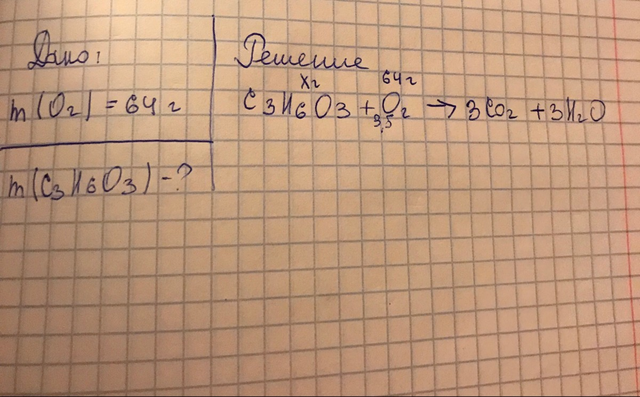 Дано:
m(O₂) = 64 г
m(C₃H₆O₃) - ?
Решение
хг 64 г
C₃H₆O₃ + O₂ → 3CO₂ + 3H₂O
3,5